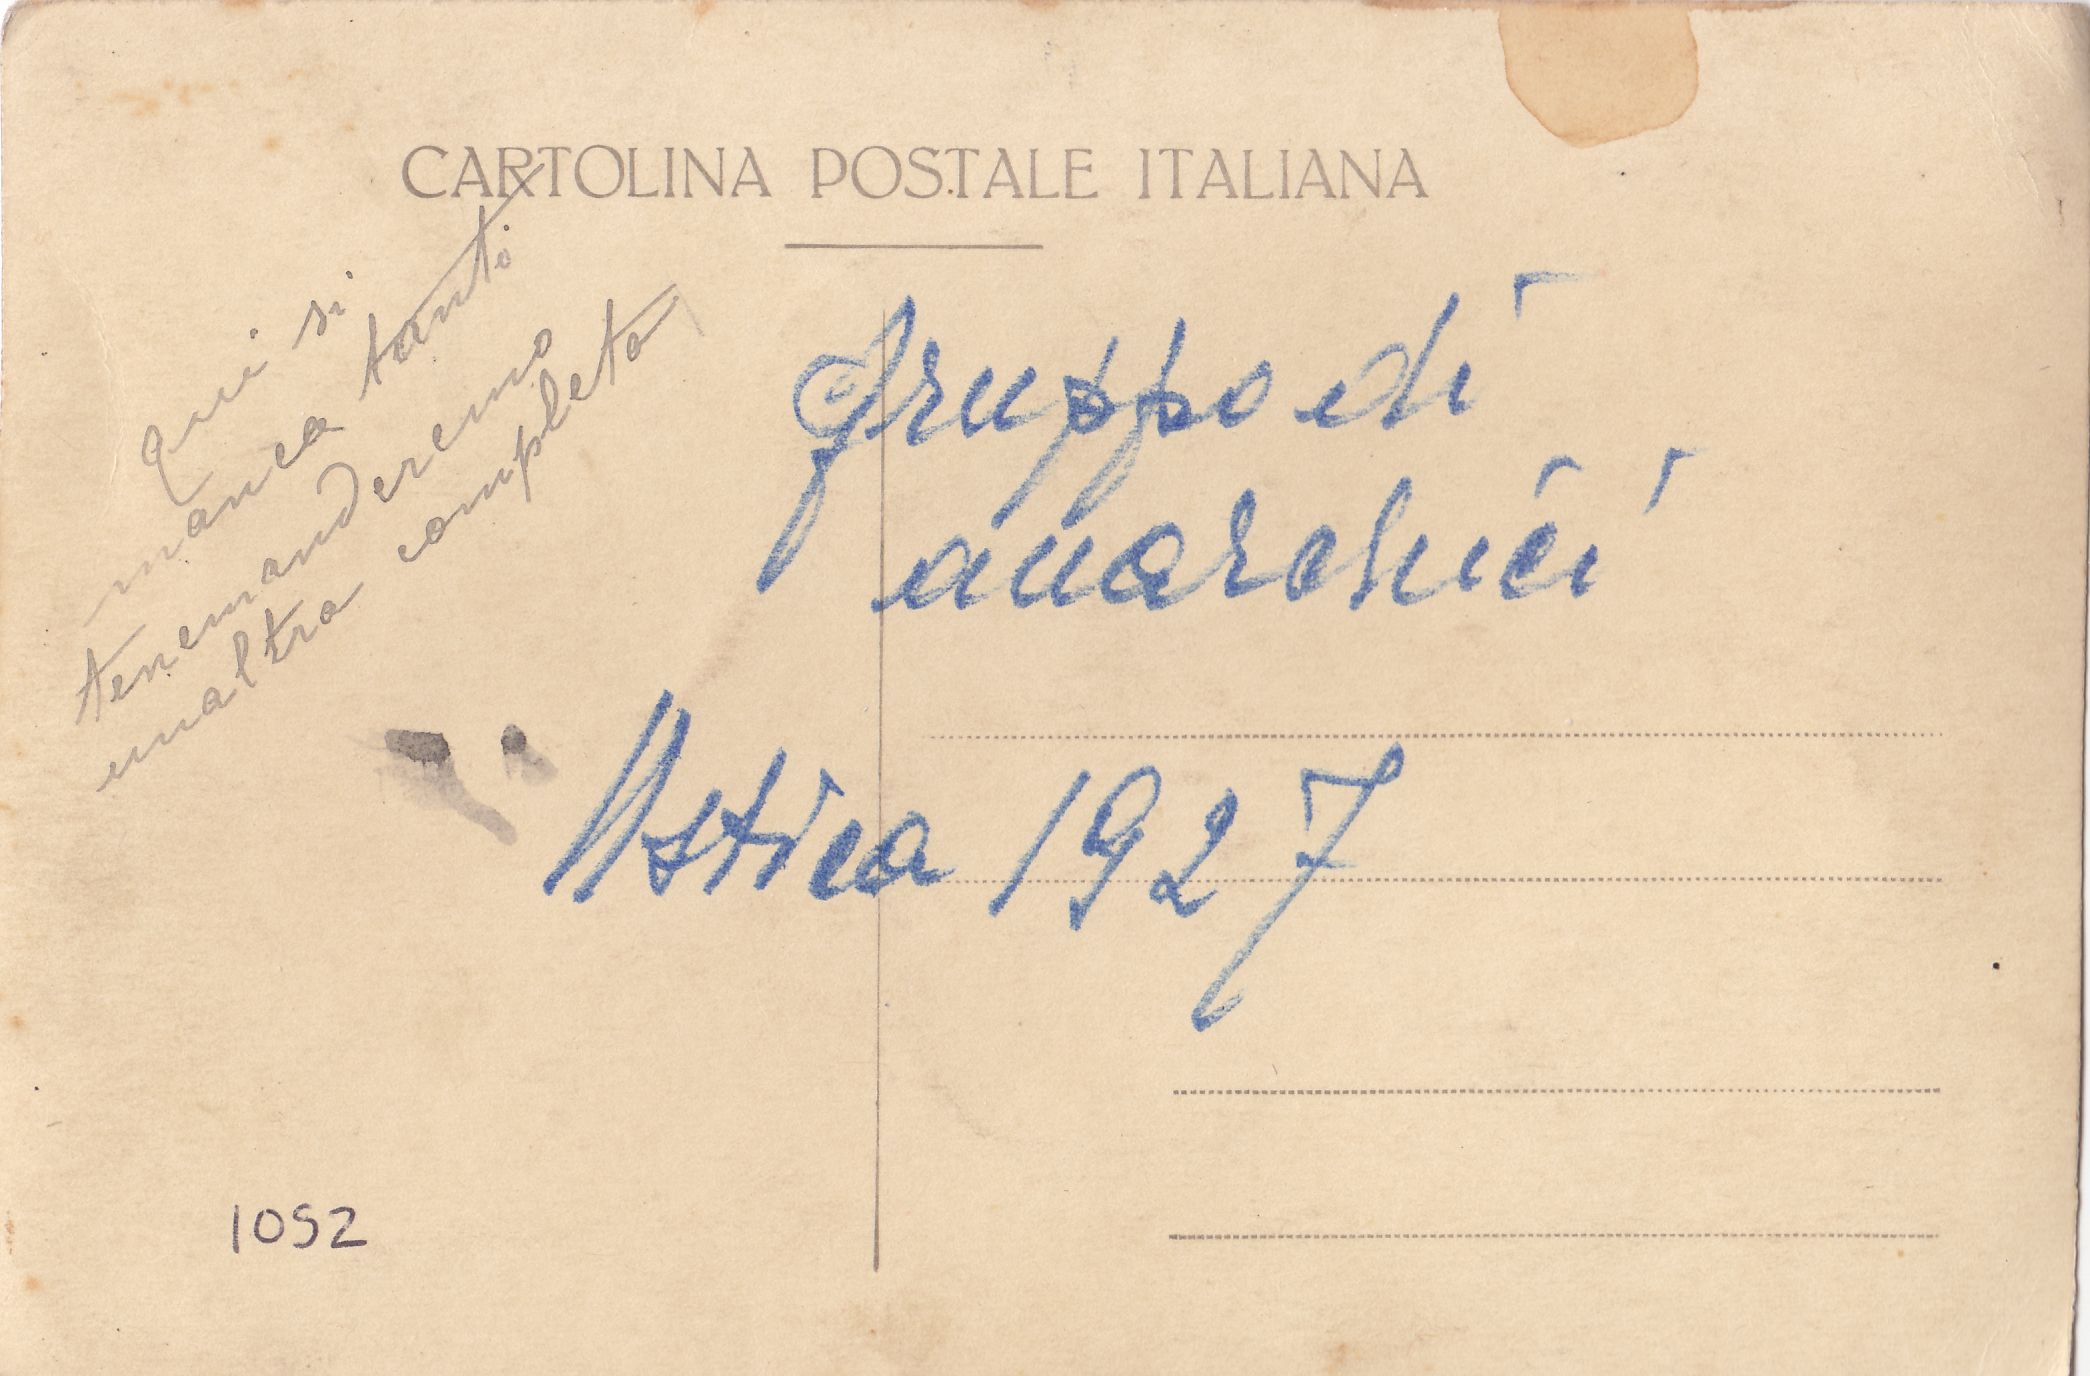 CARTOLINA POSTALE ITALIANA
qui si
manca tanti
tenemanderemo
unaltra completa
gruppo di
anarchici
Ustica 1927
1052